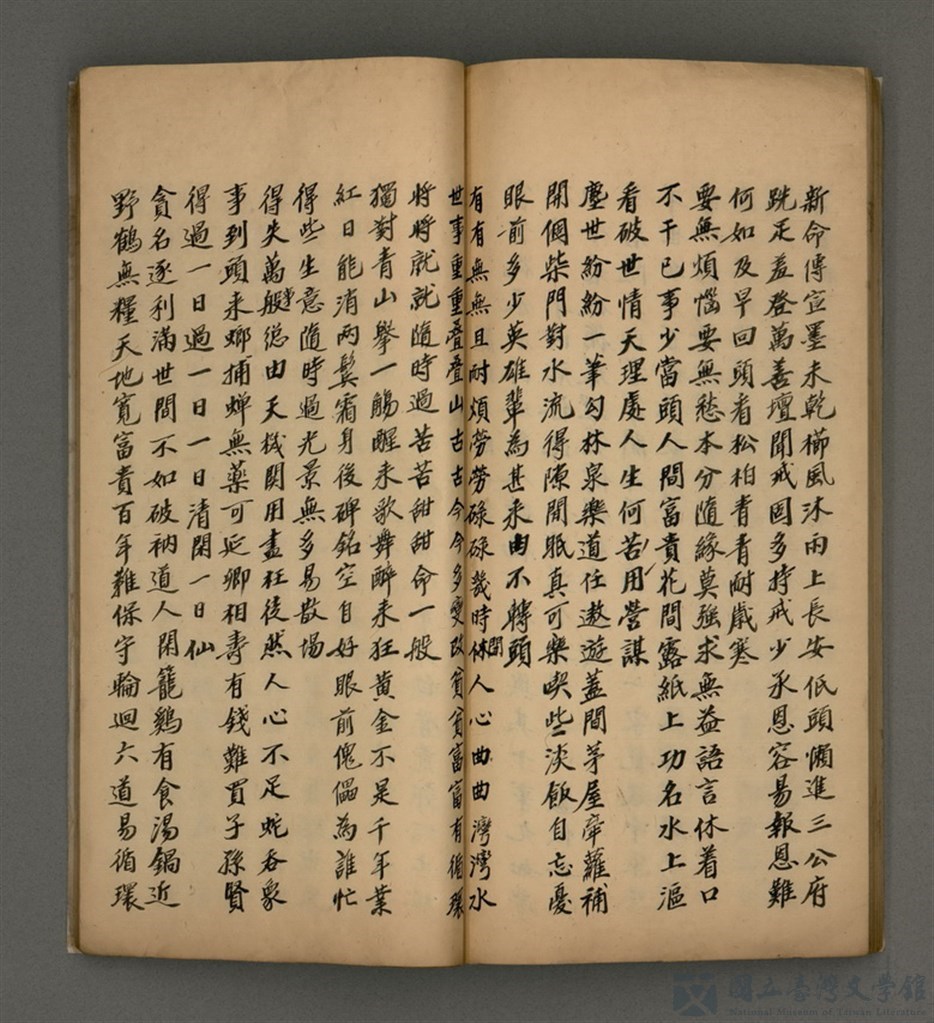 新命傳宣墨未乾櫛風沐雨上長安低頭懶進三公府
跣足羞登萬善壇聞戒固多持戒少承恩容易報恩難
何如及早回頭看松柏青青耐歲寒
要無煩惱要無愁本分隨緣莫強求無益語言休着口
不干己事少當頭人間富貴花間露紙上功名水上漚
看破世情天理處人生何苦用營謀
塵世紛紛一筆勾林泉樂道任遨遊蓋間茅屋牽蘿補
開個柴門對水流得隙閒眠真可樂喫些淡飯自忘憂
眼前多少英雄輩為甚來由不轉頭
有有無無且耐煩勞勞碌碌幾時休閒人心曲曲灣灣水
世事重重叠叠山古古今今多變改貧貧富富有循環
將將就就隨時過苦苦甜甜命一般
獨對青山舉一觴醒來歌舞醉來狂黄金不是千年業
紅日能消兩鬓霜身後碑銘空自好眼前傀儡為誰忙
得些生意隨時過光景無多易散場
得失萬般總由天機関用盡枉徒然人心不足蛇吞象
事到頭來螂捕蝉無藥可延卿相壽有錢難買子孫賢
得過一日過一日一日清閑一日仙
貪名逐利滿世間不如破衲道人閑籠鷄有食湯鍋近
野鶴無糧天地寬富貴百年難保守輪迴六道易循環
國立臺灣文學館
National Museum of Taiwan Literature